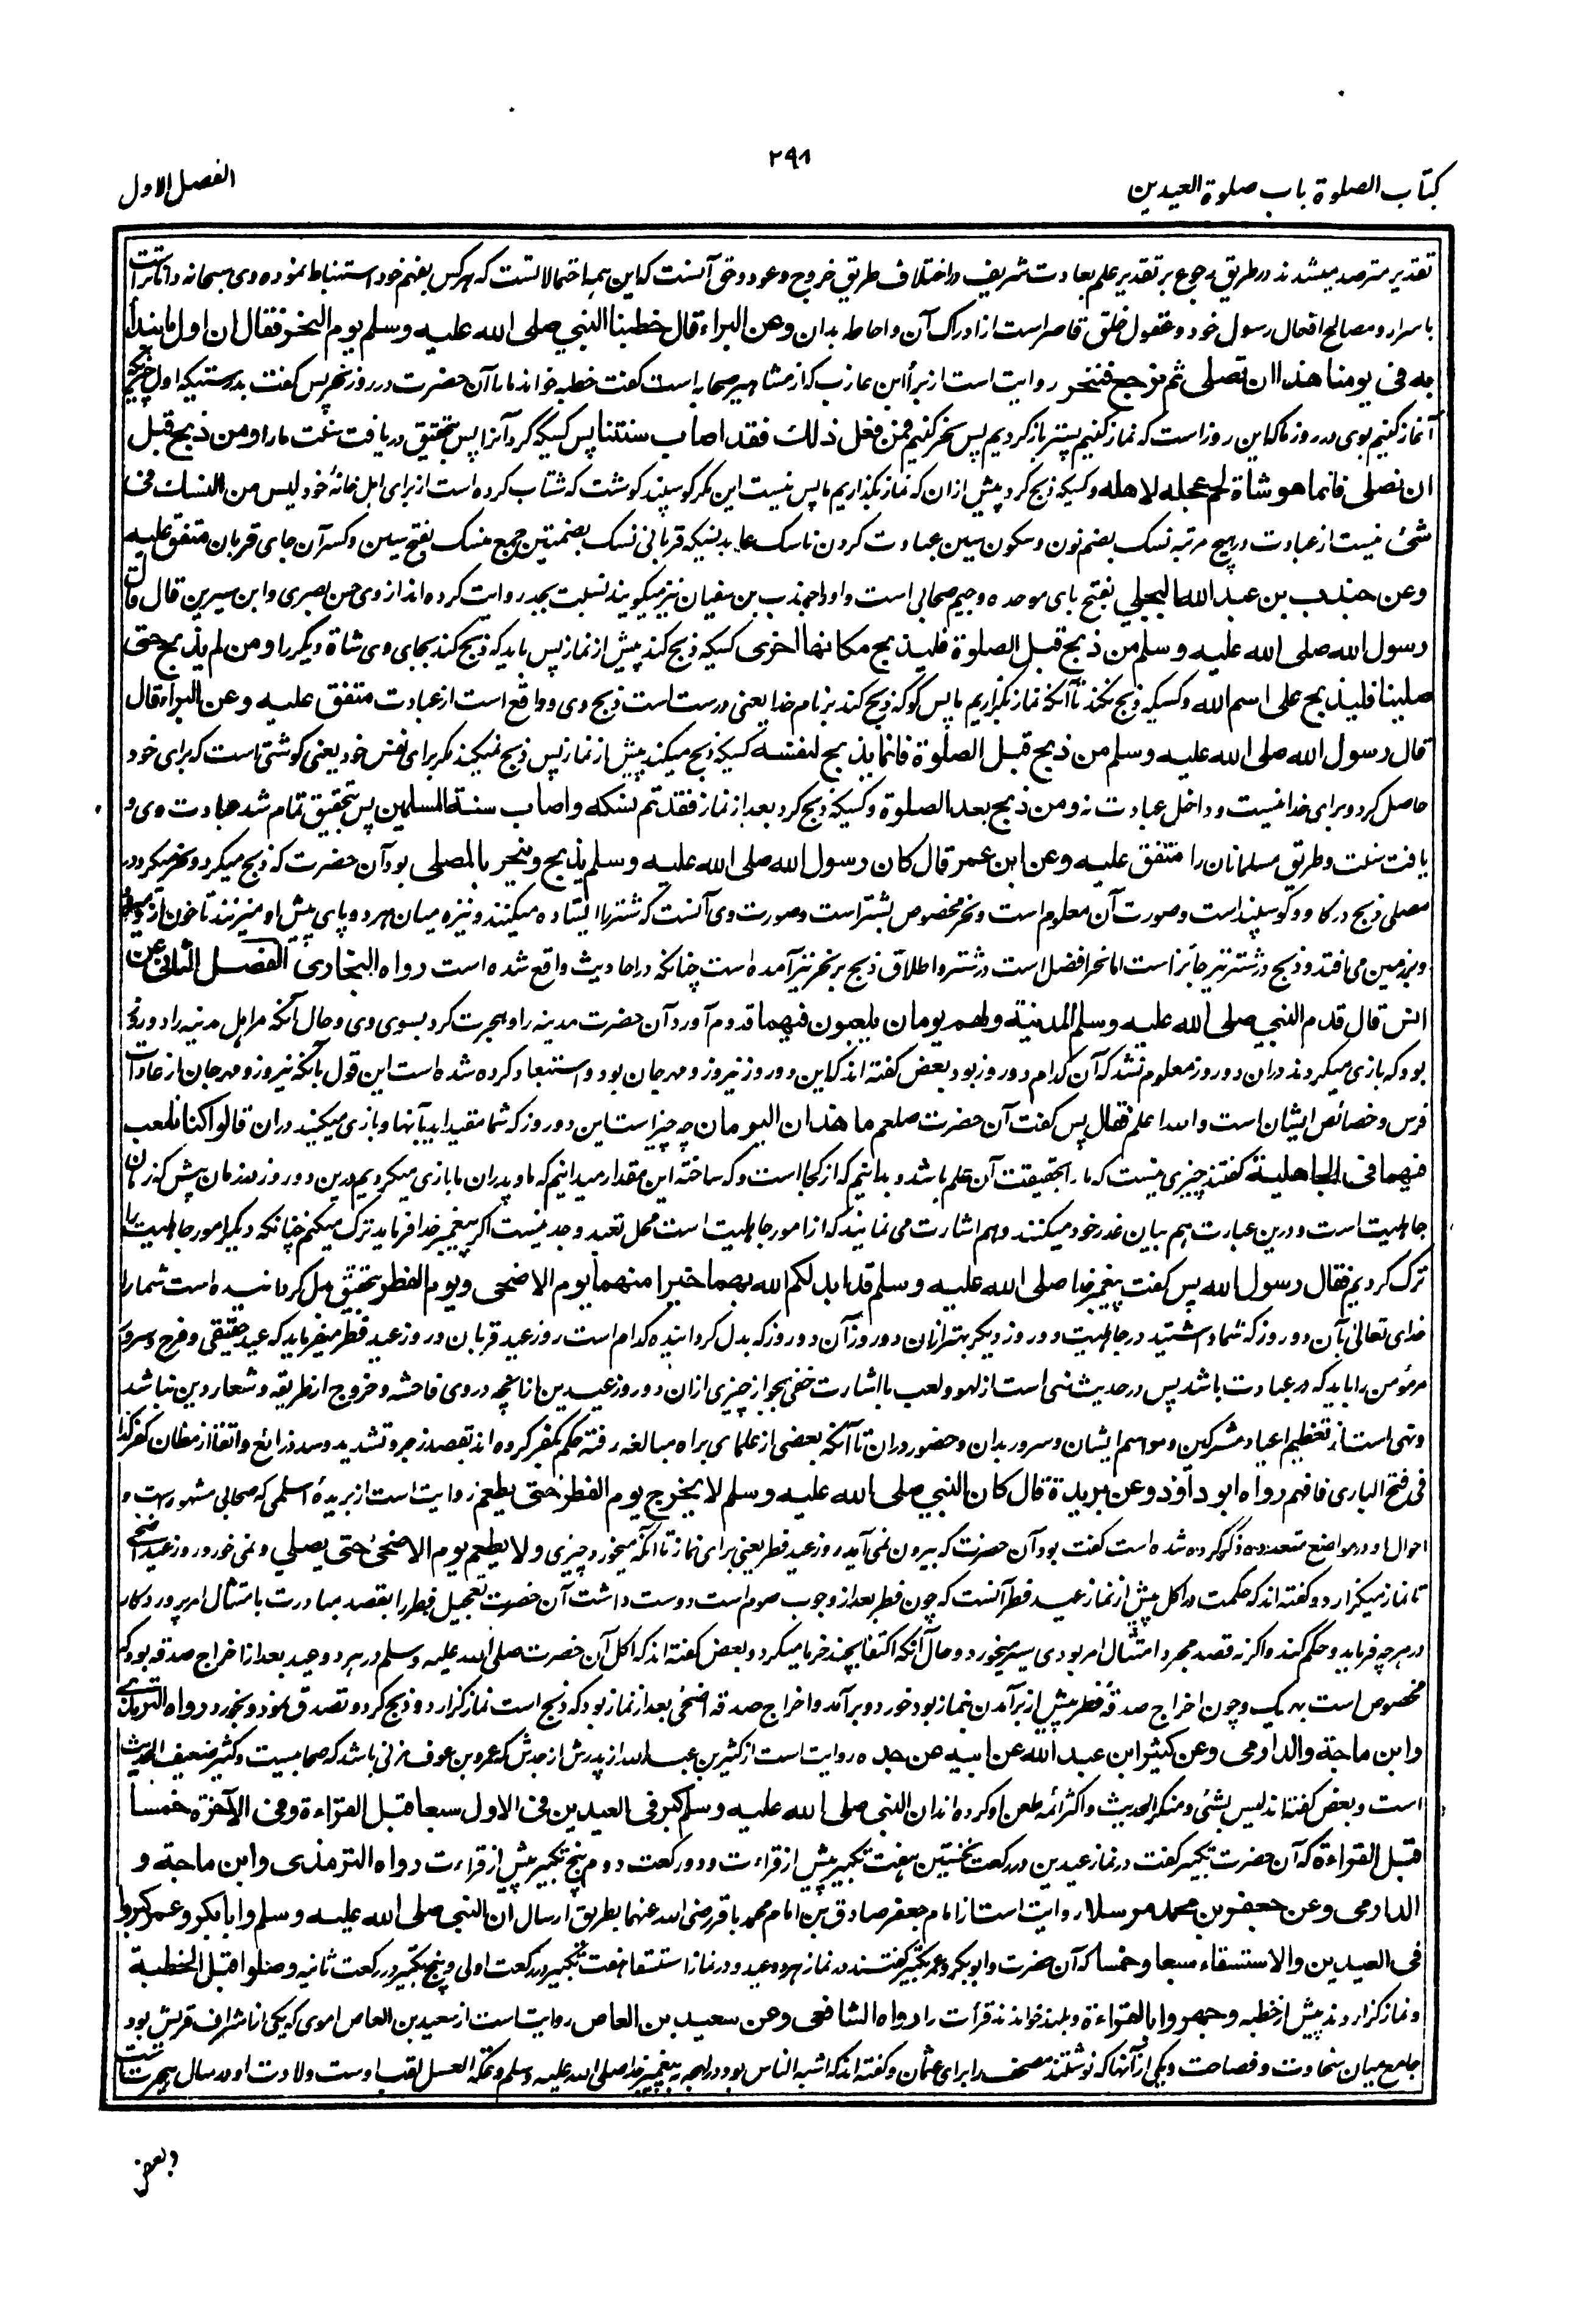 ۲۹۸
کتاب الصلوة باب صلوة العیدین
الفصل الاول
تقدیر مترصد میشدند در طریق رجوع بر تقدیر علم بعادت شریف در اختلاف طریق خروج و عود و حق آنست که این همه احتمالاتست که هر کس بفهم خود استنباط نموده وی سبحانه داناتر است
باسرار و مصالح افعال رسول خود و عقول خلق قاصر است از ادراک آن و احاطه بدان وعن البراء قال خطبنا النبي صلى الله عليه وسلم يوم النحر فقال ان اول ما نبدأ
به فى يومنا هذا ان نصلى ثم نرجع فننحر روایت است از براء ابن عازب که از مشاهیر صحابه است گفت خطبه خواند ما را آن حضرت در روز نحر پس گفت بدرستیکه اول چیزیکه
آغاز کنیم بوی در روز ما که این روز است که نماز کنیم پستر باز گردیم پس نحر کنیم فمن فعل ذلك فقد اصاب سنتنا پس کسیکه کرد آنرا پس بتحقیق دریافت سنت ما را ومن ذبح قبل
ان نصلى فانما هو شاة لحم عجله لاهله و کسیکه ذبح کرد پیش ازان که نماز بگذاریم ما پس نیست این مگر گوسپند گوشت که شتاب کرده است از برای اهل خانهٔ خود ليس من النسك فى
شئ نیست از عبادت در هیچ مرتبه نسک بضم نون و سکون سین عبادت کردن ناسک عابد نسیکه قربانی نسک بضمتین جمع منسک بفتح سین و کسر آن جای قربان متفق عليه
وعن جندب بن عبد الله البجلي بفتح بای موحده و جیم صحابی است و او را جندب بن سفیان نیز میگویند نسبت بجد روایت کرده اند از وی حسن بصری و ابن سیرین قال قال
رسول الله صلى الله عليه وسلم من ذبح قبل الصلوة فليذبح مكانها اخرى کسیکه ذبح کند پیش از نماز پس باید که ذبح کند بجای وی شاة دیگر را ومن لم يذبح حتى
صلينا فليذبح على اسم الله و کسیکه ذبح نکند تا آنکه نماز بگزاریم ما پس گو که ذبح کند بر نام خدا یعنی درست است ذبح وی و واقع است از عبادت متفق عليه وعن البراء قال
قال رسول الله صلى الله عليه وسلم من ذبح قبل الصلوة فانما يذبح لنفسه کسیکه ذبح میکند پیش از نماز پس ذبح نمیکند مگر برای نفس خود یعنی گوشتی است که برای خود
حاصل کرد و برای خدا نیست و داخل عبادت نه ومن ذبح بعد الصلوة و کسیکه ذبح کرد بعد از نماز فقد تم نسكه واصاب سنة المسلمين پس بتحقیق تمام شد عبادت وی و
یافت سنت و طریق مسلمانان را متفق عليه وعن ابن عمر قال كان رسول الله صلى الله عليه وسلم يذبح وينحر بالمصلى بود آن حضرت که ذبح میکرد و نحر میکرد در
مصلی ذبح در گاو و گوسپند است و صورت آن معلوم است و نحر مخصوص بشتر است و صورت وی آنست که شتر را ایستاده میکنند و نیزه میان هر دو پای پیش او میزنند تا خون از
و بر زمین می افتد و ذبح در شتر نیز جائز است اما نحر افضل است در شتر و اطلاق ذبح بر نحر نیز آمده است چنانکه در احادیث واقع شده است رواه البخارى الفصل الثانى عن
انس قال قدم النبي صلى الله عليه وسلم المدينة ولهم يومان يلعبون فيهما قدوم آورد آن حضرت مدینه را و هجرت کرد بسوی وی و حال آنکه مر اهل مدینه را دو روز
بود که بازی میکردند دران دو روز معلوم نشد که آن کدام دو روز بود بعض گفته اند که این دو روز نیروز و مهرجان بود و استبعاد کرده شده است این قول بآنکه نیروز و مهرجان از عادات
فرس و خصائص ایشان است والله اعلم فقال پس گفت آن حضرت صلعم ما هذان اليومان چه چیز است این دو روز که شما مقید اید بآنها و بازی میکنید دران قالوا كنا نلعب
فيهما فى الجاهلية گفتند چیزی نیست که ما را بحقیقت آن علم باشد و بدانیم که از کجا است و که ساخته این مقدار میدانیم که ما و پدران ما بازی میکردیم درین دو روز در زمان پیش که زمان
جاهلیت است و درین عبارت هم بیان عذر خود میکنند و هم اشارت می نمایند که از امور جاهلیت است محل تعبد و جد نیست اگر پیغمبر خدا فرماید ترک میکنیم چنانکه دیگر امور جاهلیت را
ترک کردیم فقال رسول الله پس گفت پیغمبر خدا صلى الله عليه وسلم قد ابدلكم الله بهما خيرا منهما يوم الاضحى ويوم الفطر بتحقیق بدل گردانیده است شما را
خدای تعالی بآن دو روز که شما داشتید در جاهلیت دو روز دیگر بهتر ازان دو روز آن دو روز که بدل گردانیده کدام است روز عید قربان و روز عید فطر میفرماید که عید حقیقی و فرح و سرور
مر مؤمن را باید که در عبادت باشد پس در حدیث نهی است از لهو و لعب با اشارت خفی بجواز چیزی ازان دو روز عیدین از آنچه در وی فاحشه و خروج از طریقه و شعار دین نباشد
و نهی است از تعظیم اعیاد مشرکین و مواسم ایشان و سرور بدان و حضور دران تا آنکه بعضی از علما برای راه مبالغه رفته حکم بکفر کرده اند بقصد زجر و تشدید و سد ذرائع و اتقا از مظان کفر کذا
فی فتح الباری فافهم رواه ابو داؤد وعن بريدة قال كان النبي صلى الله عليه وسلم لا يخرج يوم الفطر حتى يطعم روایت است از بریدهٔ اسلمی که صحابی مشهور است و
احوال او در مواضع متعدده ذکر کرده شده است گفت بود آن حضرت که بیرون نمی آید روز عید فطر یعنی برای نماز تا آنکه میخورد چیزی ولا يطعم يوم الاضحى حتى يصلي و نمی خورد روز عید اضحی
تا نماز میگزارد و گفته اند که حکمت در اکل پیش از نماز عید فطر آنست که چون فطر بعد از وجوب صوم است دوست داشت آن حضرت تعجیل فطر را بقصد مبادرت بامتثال امر پروردگار
در هر چه فرماید و حکم کند و اگر نه قصد مجرد امتثال امر بودی سیر میخورد و حال آنکه اکتفا بچند خرما میکرد و بعض گفته اند که اکل آن حضرت صلی الله علیه وسلم در هر دو عید بعد از اخراج صدقه بود که
مخصوص است بهر یک و چون اخراج صدقهٔ فطر پیش از برآمدن بنماز بود خورد و برآمد و اخراج صدقه اضحی بعد از نماز بود که ذبح است نماز گزارد و ذبح کرد و تصدق نمود و بخورد رواه الترمذى
وابن ماجة والدارمى وعن كثير ابن عبد الله عن ابيه عن جده روایت است از کثیر بن عبد الله از پدرش از جدش که عمرو بن عوف مزنی باشد که صحابیست و کثیر ضعیف الحدیث
است و بعض گفته اند لیس بشئ و منکر الحدیث و اکثر ائمه طعن او کرده اند ان النبى صلى الله عليه وسلم كبر فى العيدين فى الاولى سبعا قبل القراءة وفى الآخرة خمسا
قبل القراءة که آن حضرت تکبیر گفت در نماز عیدین در رکعت نخستین هفت تکبیر پیش از قراءت و در رکعت دوم پنج تکبیر پیش از قراءت رواه الترمذى وابن ماجة و
الدارمى وعن جعفر بن محمد مرسلا روایت است از امام جعفر صادق بن امام محمد باقر رضی الله عنهما بطریق ارسال ان النبى صلى الله عليه وسلم وابا بكر وعمر كبروا
فى العيدين والاستسقاء سبعا وخمسا که آن حضرت و ابوبکر و عمر تکبیر گفتند در نماز هر دو عید و در نماز استسقا هفت تکبیر در رکعت اولی و پنج تکبیر در رکعت ثانیه وصلوا قبل الخطبة
و نماز گزاردند پیش از خطبه وجهروا بالقراءة و بلند خواندند قرأت را رواه الشافعى وعن سعيد بن العاص روایت است از سعید بن العاص اموی که یکی از اشراف قریش بود
جامع میان سخاوت و فصاحت و یکی از آنها که نوشتند مصحف را برای عثمان و گفته اند که اشبه الناس بود در لهجه به پیغمبر خدا صلی الله علیه وسلم و عکة العسل لقب اوست ولادت او در سال هجرت است
و بعض